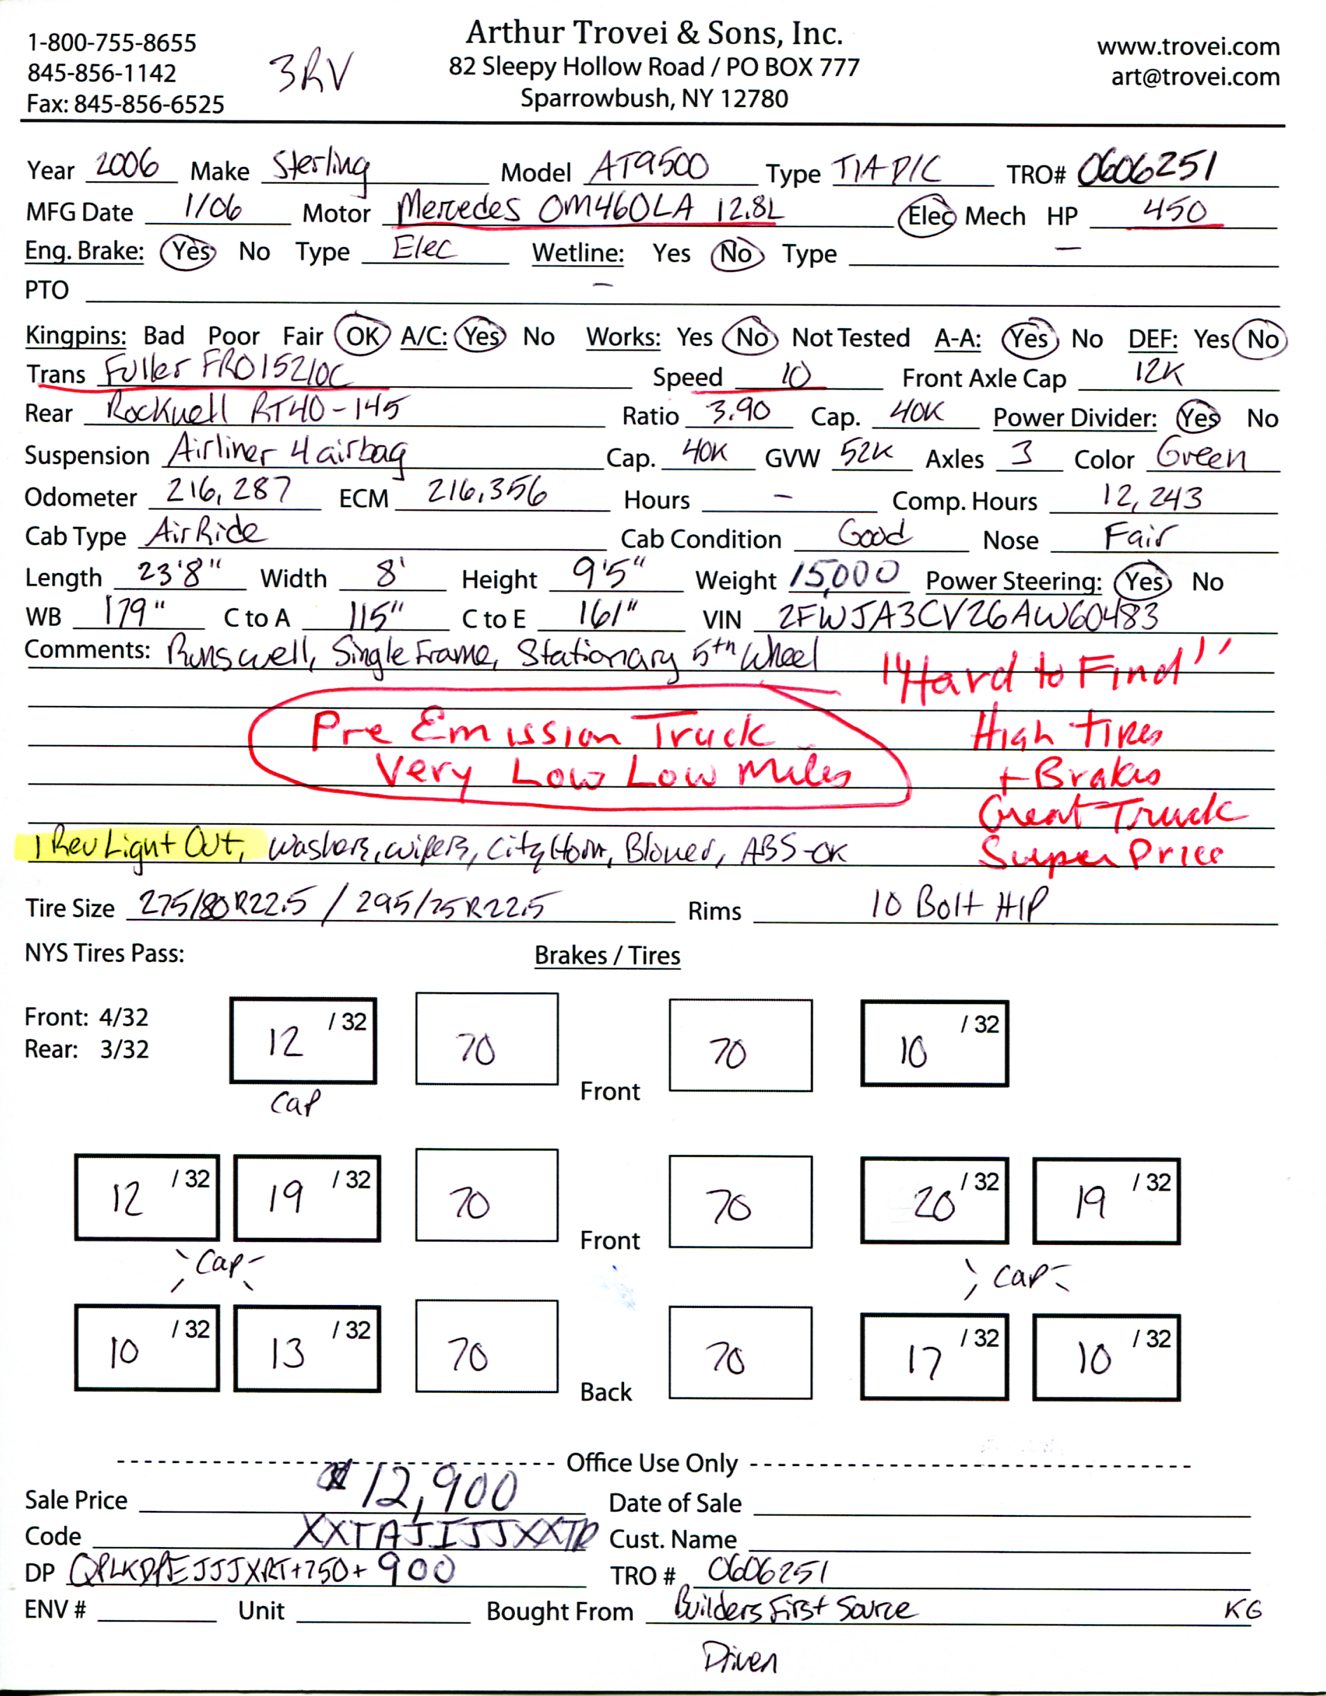 1-800-755-8655
845-856-1142
Fax: 845-856-6525
3RV
Arthur Trovei & Sons, Inc.
82 Sleepy Hollow Road / PO BOX 777
Sparrowbush, NY 12780
www.trovei.com
art@trovei.com
Year 2006 Make Sterling Model AT9500 Type T/A D/C TRO# 0606251
MFG Date 1/06 Motor Mercedes OM460LA 12.8L Elec Mech HP 450
Eng. Brake: Yes No Type Elec Wetline: Yes No Type –
PTO –
Kingpins: Bad Poor Fair OK A/C: Yes No Works: Yes No Not Tested A-A: Yes No DEF: Yes No
Trans Fuller FRO15210C Speed 10 Front Axle Cap 12K
Rear Rockwell RT40-145 Ratio 3.90 Cap. 40K Power Divider: Yes No
Suspension Airliner 4 airbag Cap. 40K GVW 52K Axles 3 Color Green
Odometer 216,287 ECM 216,356 Hours – Comp. Hours 12,243
Cab Type Air Ride Cab Condition Good Nose Fair
Length 23'8" Width 8' Height 9'5" Weight 15,000 Power Steering: Yes No
WB 179" C to A 115" C to E 161" VIN 2FWJA3CV26AW60483
Comments: Runs well, Single Frame, Stationary 5th Wheel
"Hard to Find"
Pre Emission Truck
Very Low Low Miles
High Tires
+ Brakes
Great Truck
Super Price
1 Rev Light Out, washers, wipers, City Horn, Blower, ABS-OK
Tire Size 275/80R22.5 / 295/75R22.5 Rims 10 Bolt HP
NYS Tires Pass: Brakes / Tires
Front: 4/32
Rear: 3/32
12 /32 70 Front 70 10 /32
Cap
12 /32 19 /32 70 Front 70 20 /32 19 /32
Cap Cap
10 /32 13 /32 70 Back 70 17 /32 10 /32
Office Use Only
Sale Price $12,900 Date of Sale
Code XXTAJIJJXXTR Cust. Name
DP +750+900 TRO # 0606251
ENV # Unit Bought From Builders First Source KG
Driven